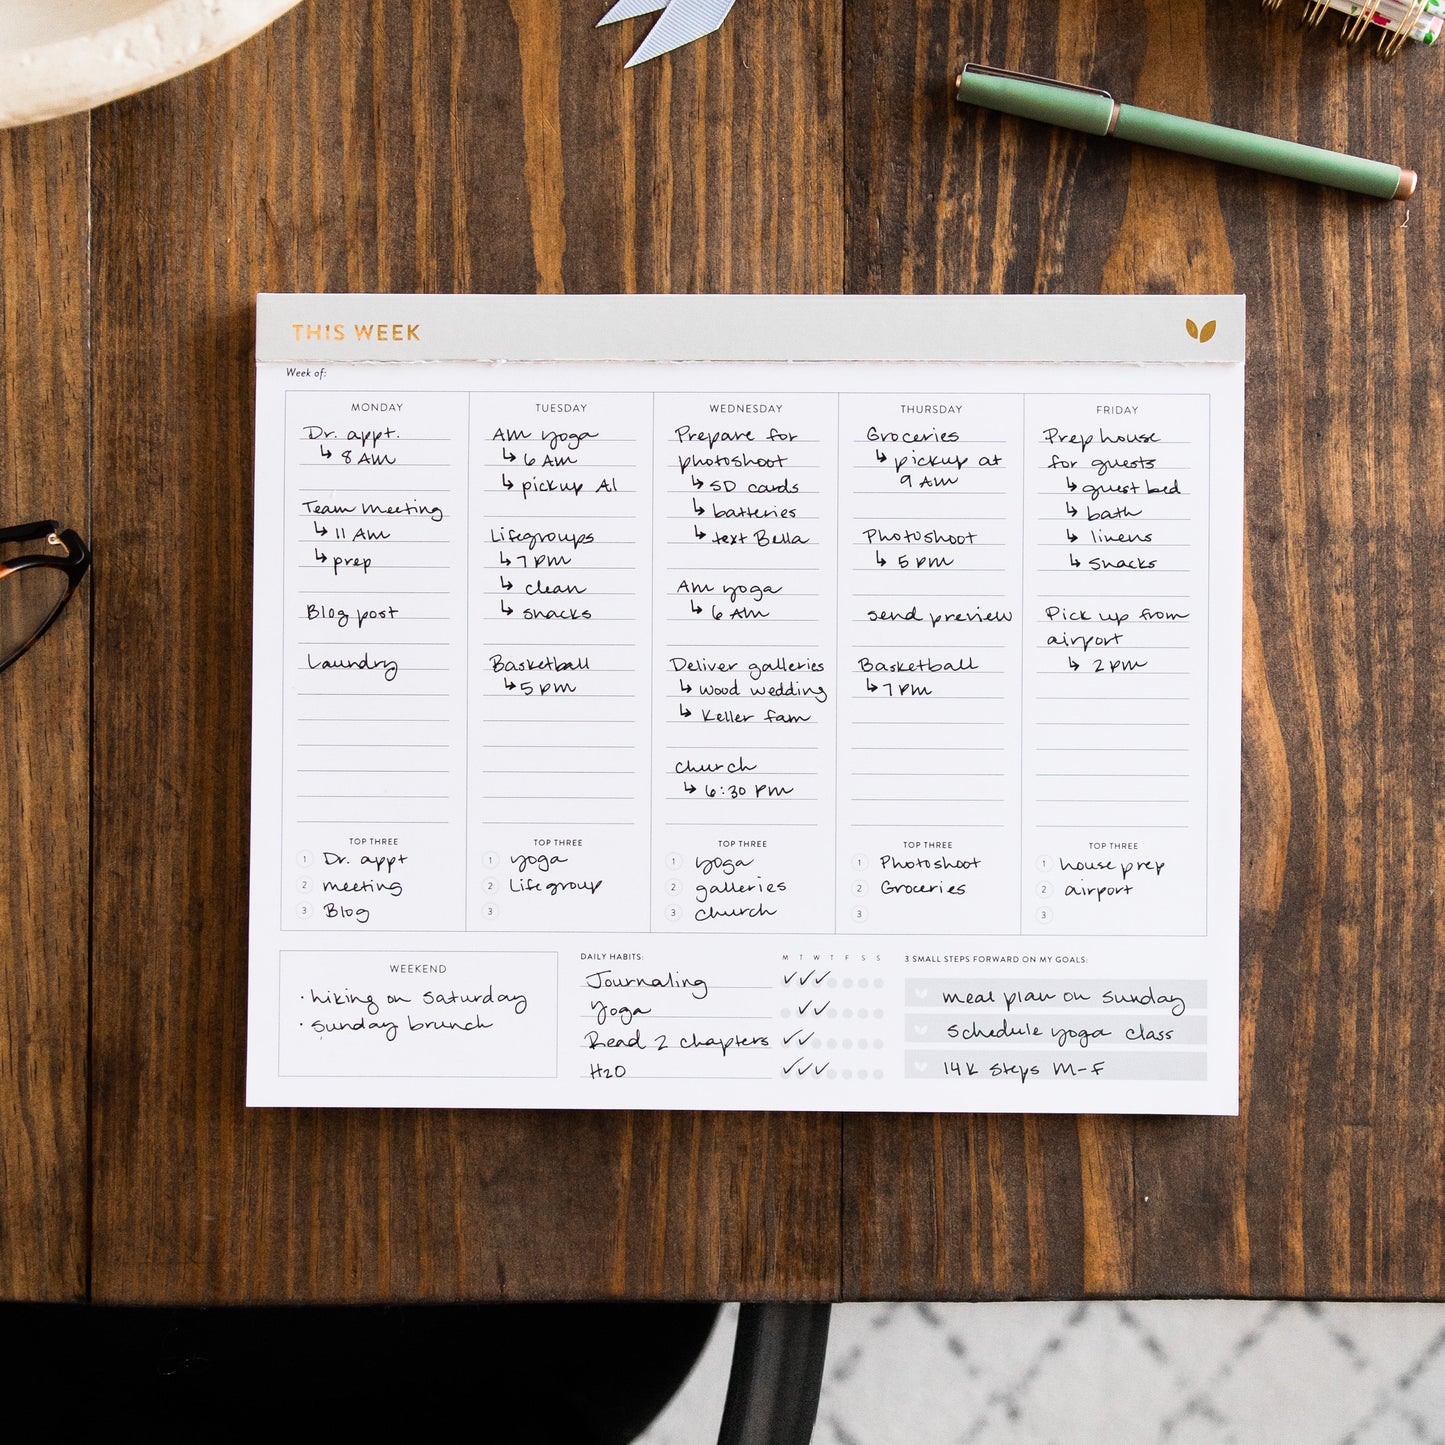 THIS WEEK
Week of:
MONDAY
Dr. appt.
↳ 8 AM
Team Meeting
↳ 11 AM
↳ prep
Blog post
Laundry
TOP THREE
1 Dr. appt
2 meeting
3 Blog
TUESDAY
AM yoga
↳ 6 AM
↳ pickup Al
Lifegroups
↳ 7 PM
↳ clean
↳ snacks
Basketball
↳ 5 PM
TOP THREE
1 yoga
2 Lifegroup
3
WEDNESDAY
Prepare for
photoshoot
↳ SD cards
↳ batteries
↳ text Bella
AM yoga
↳ 6 AM
Deliver galleries
↳ wood wedding
↳ Keller fam
church
↳ 6:30 PM
TOP THREE
1 yoga
2 galleries
3 church
THURSDAY
Groceries
↳ pickup at
9 AM
Photoshoot
↳ 5 PM
send preview
Basketball
↳ 7 PM
TOP THREE
1 Photoshoot
2 Groceries
3
FRIDAY
Prep house
for guests
↳ guest bed
↳ bath
↳ linens
↳ snacks
Pick up from
airport
↳ 2 PM
TOP THREE
1 house prep
2 airport
3
WEEKEND
· hiking on saturday
· sunday brunch
DAILY HABITS: M T W T F S S
Journaling ✓✓✓
Yoga ✓✓
Read 2 chapters ✓✓
H2O ✓✓✓
3 SMALL STEPS FORWARD ON MY GOALS:
meal plan on sunday
schedule yoga class
14K steps M-F